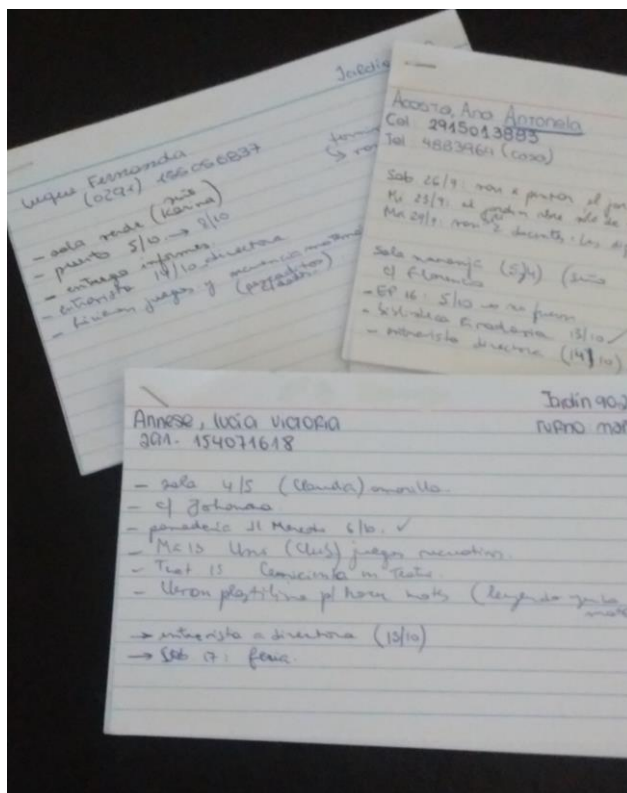 Jardín
Luque Fernanda
(0291) 156056837
- sala verde (seño Karina)
- puerto 5/10 → 8/10
- entrega informes.
- entrevista 14/10 directora
- llevaron juegos y secuencia
Acosta, Ana Antonela
Cel 2915013883
Tel 4883964 (casa)
Sab 26/9: van a pintar el
Mi 23/9: el jardín abre
Ma 29/9: 2 docentes. Los
Sala naranja (5/4) (seño
c/ Florencia
- EP 16: 5/10 → no fueron
- biblioteca Rivadavia 13/10 ✓
- entrevista directora (14/10)
Jardín 90
Annese, Lucía Victoria
turno mañ
291- 154071618
- sala 4/5 (Claudia) amarilla.
- c/ Johanna
- panadería 6/10. ✓
- Mc 15 Uns (Club) juegos recreativos.
- 15 Cenicienta en Teatro.
- llevan plastilina p/ hacer (leyendo
→ entrevista a directora (13/10)
→ Sab 17: feria.